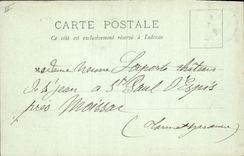 CARTE POSTALE
Ce côté est exclusivement réservé à l'adresse
M Laporte château
de St Jean à St Paul D'Espis
près Moissac
(Tarn et Garonne)